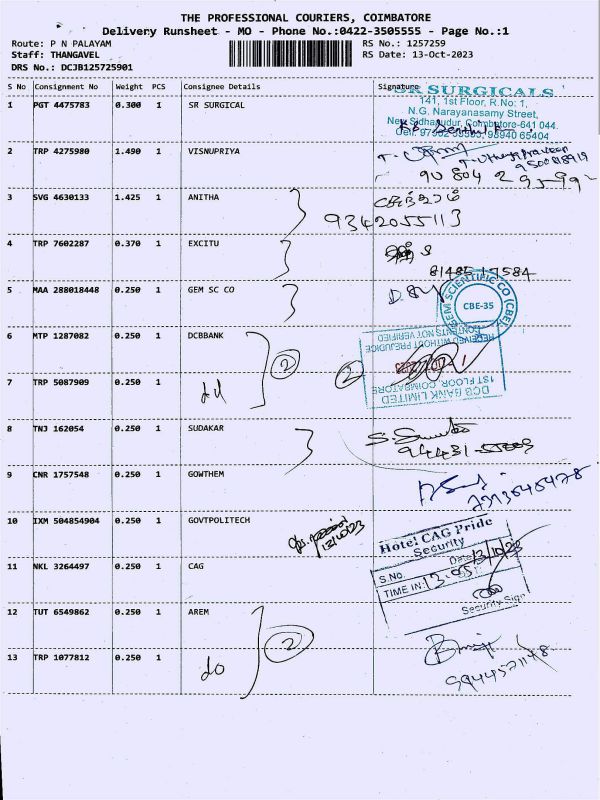 THE PROFESSIONAL COURIERS, COIMBATORE
Delivery Runsheet - MO - Phone No.:0422-3505555 - Page No.:1
Route: P N PALAYAM
RS No.: 1257259
Staff: THANGAVEL
RS Date: 13-Oct-2023
DRS No.: DCJB125725901
S No Consignment No Weight PCS Consignee Details Signature
1 PGT 4475783 0.300 1 SR SURGICAL
SR SURGICALS
141, 1st Floor, R.No: 1,
N.G. Narayanasamy Street,
New Sidhapudur, Coimbatore-641 044.
2 TRP 4275980 1.490 1 VISNUPRIYA
3 SVG 4630133 1.425 1 ANITHA
9342055113
4 TRP 7602287 0.370 1 EXCITU
81485 17584
5 MAA 288018448 0.250 1 GEM SC CO
GEM SCIENTIFIC CO (CBE)
CBE-35
6 MTP 1287082 0.250 1 DCBBANK
2
2
DCB BANK LIMITED
1ST FLOOR, COIMBATORE
RECEIVED WITHOUT PREJUDICE
CONTENTS NOT VERIFIED
7 TRP 5087909 0.250 1
8 TNJ 162054 0.250 1 SUDAKAR
9 CNR 1757548 0.250 1 GOWTHEM
10 IXM 504854904 0.250 1 GOVTPOLITECH
13/10/23
11 NKL 3264497 0.250 1 CAG
Hotel CAG Pride
Security
S.NO. Date 13/10/23
TIME IN: 13.05
Security Sign
12 TUT 6549862 0.250 1 AREM
2
13 TRP 1077812 0.250 1
do